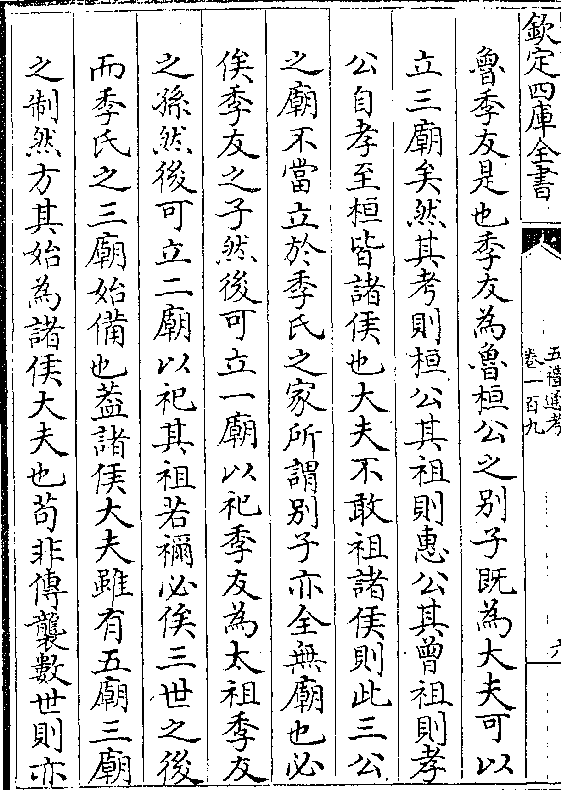 欽定四庫全書
五禮通考
卷一百九
六
魯季友是也季友為魯桓公之别子既為大夫可以
立三廟矣然其考則桓公其祖則惠公其曾祖則孝
公自孝至桓皆諸侯也大夫不敢祖諸侯則此三公
之廟不當立於季氏之家所謂别子亦全無廟也必
俟季友之子然後可立一廟以祀季友為太祖季友
之孫然後可立二廟以祀其祖若禰必俟三世之後
而季氏之三廟始備也葢諸侯大夫雖有五廟三廟
之制然方其始為諸侯大夫也苟非傳襲數世則亦